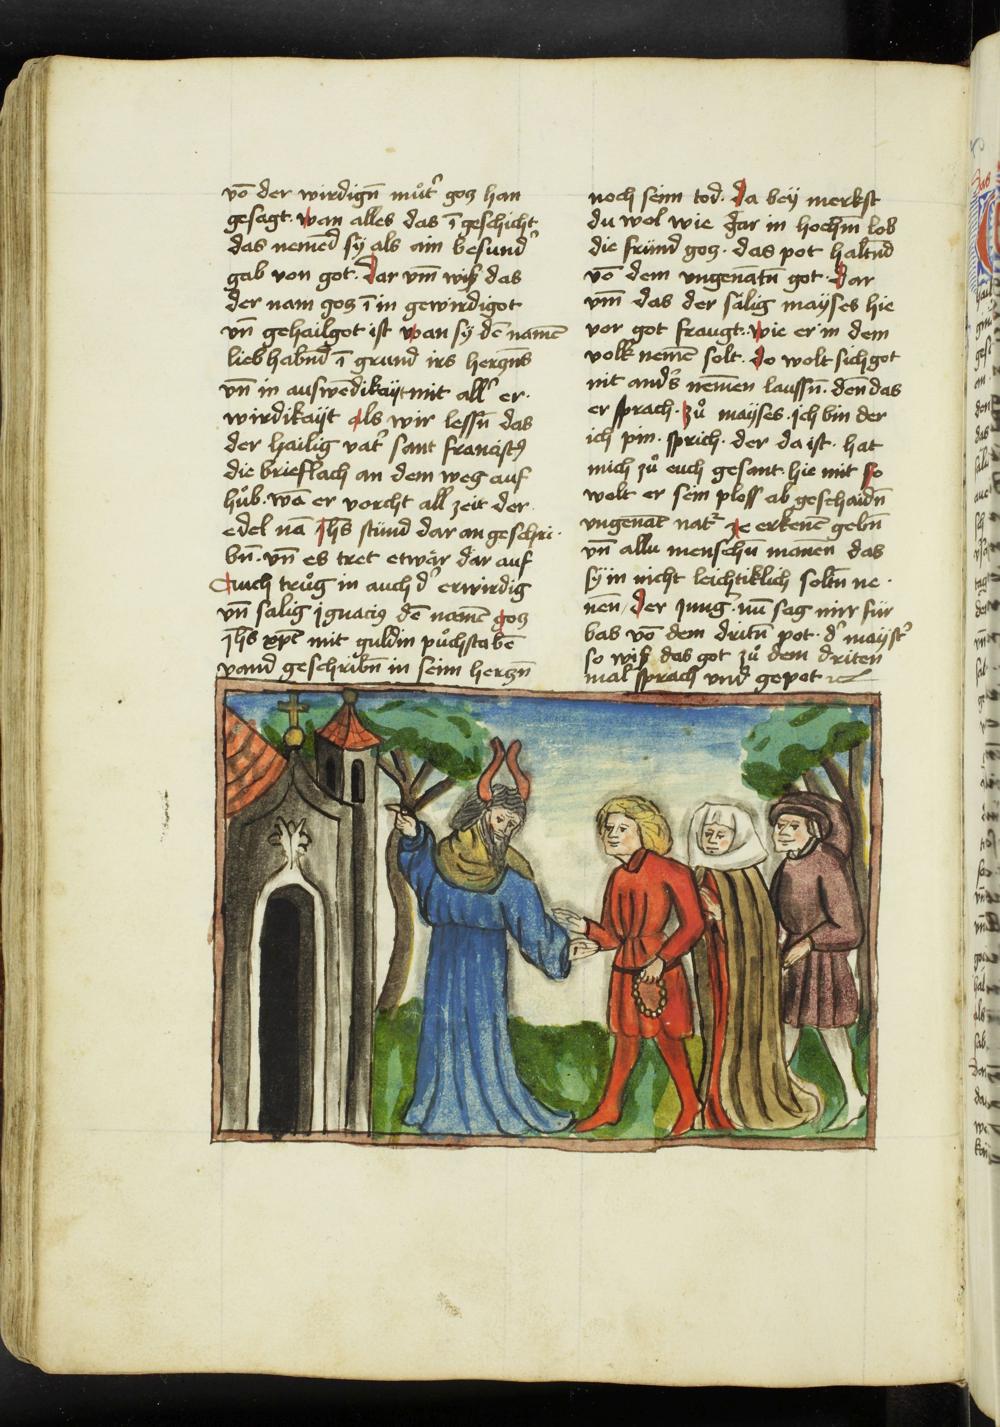 vō der wirdign̄ můt͛ gotz han
gesagt. wan alles das ī geschicht
das nemēd sy als ain besund͛
gab von got. Dar vm̄ wiß das
der nam gotz ī in gewirdigot
vn̄ gehailgot ist wan sy dē namē
lieb habnd ī grund irs hertzns
vn̄ in auswēdikayt mit all͛ er.
wirdikayt als wir lessn̄ das
der hailig vat͛ sant franciscꝰ
die brieflach an dem weg auf
hůb. wā er vorcht all zeit der
edel nā jhs stůnd dar an geschri.
bn̄. vn̄ es tret etwār dar auf
Auch trůg in auch d͛ erwirdig
vn̄ salig ignaciꝰ dē namē gotz
jhs xp̄c mit guldin půchstabē
vand geschribn̄ in seim hertzn̄
noch seim tod. Da bey merkst
du wol wie gar in hochm̄ lob
die frůnd gotz. das pot haltn̄d
vō dem vngenātn̄ got. Dar
vm̄ das der sälig mayses hie
vor got fraugt. Wie er in dem
volk nemē solt. Do wolt sich got
nit and͛s nemen laussn̄. den das
er sprach. Zů mayses. ich bin der
ich pin. sprich. der da ist. hat
mich zů euch gesant. hie mit so
wolt er sein ploss ab geschaidn̄
vngenāt nat͛ ze erkenē gebn̄
vn̄ allū menschn̄ manen das
sy in nicht leichtiklich soltn̄ ne.
nen/ Der jung. nū sag mir für
bas vō dem dritn̄ pot. d͛ mayst͛
so wiß das got zů dem driten
mal sprach vnd gepot